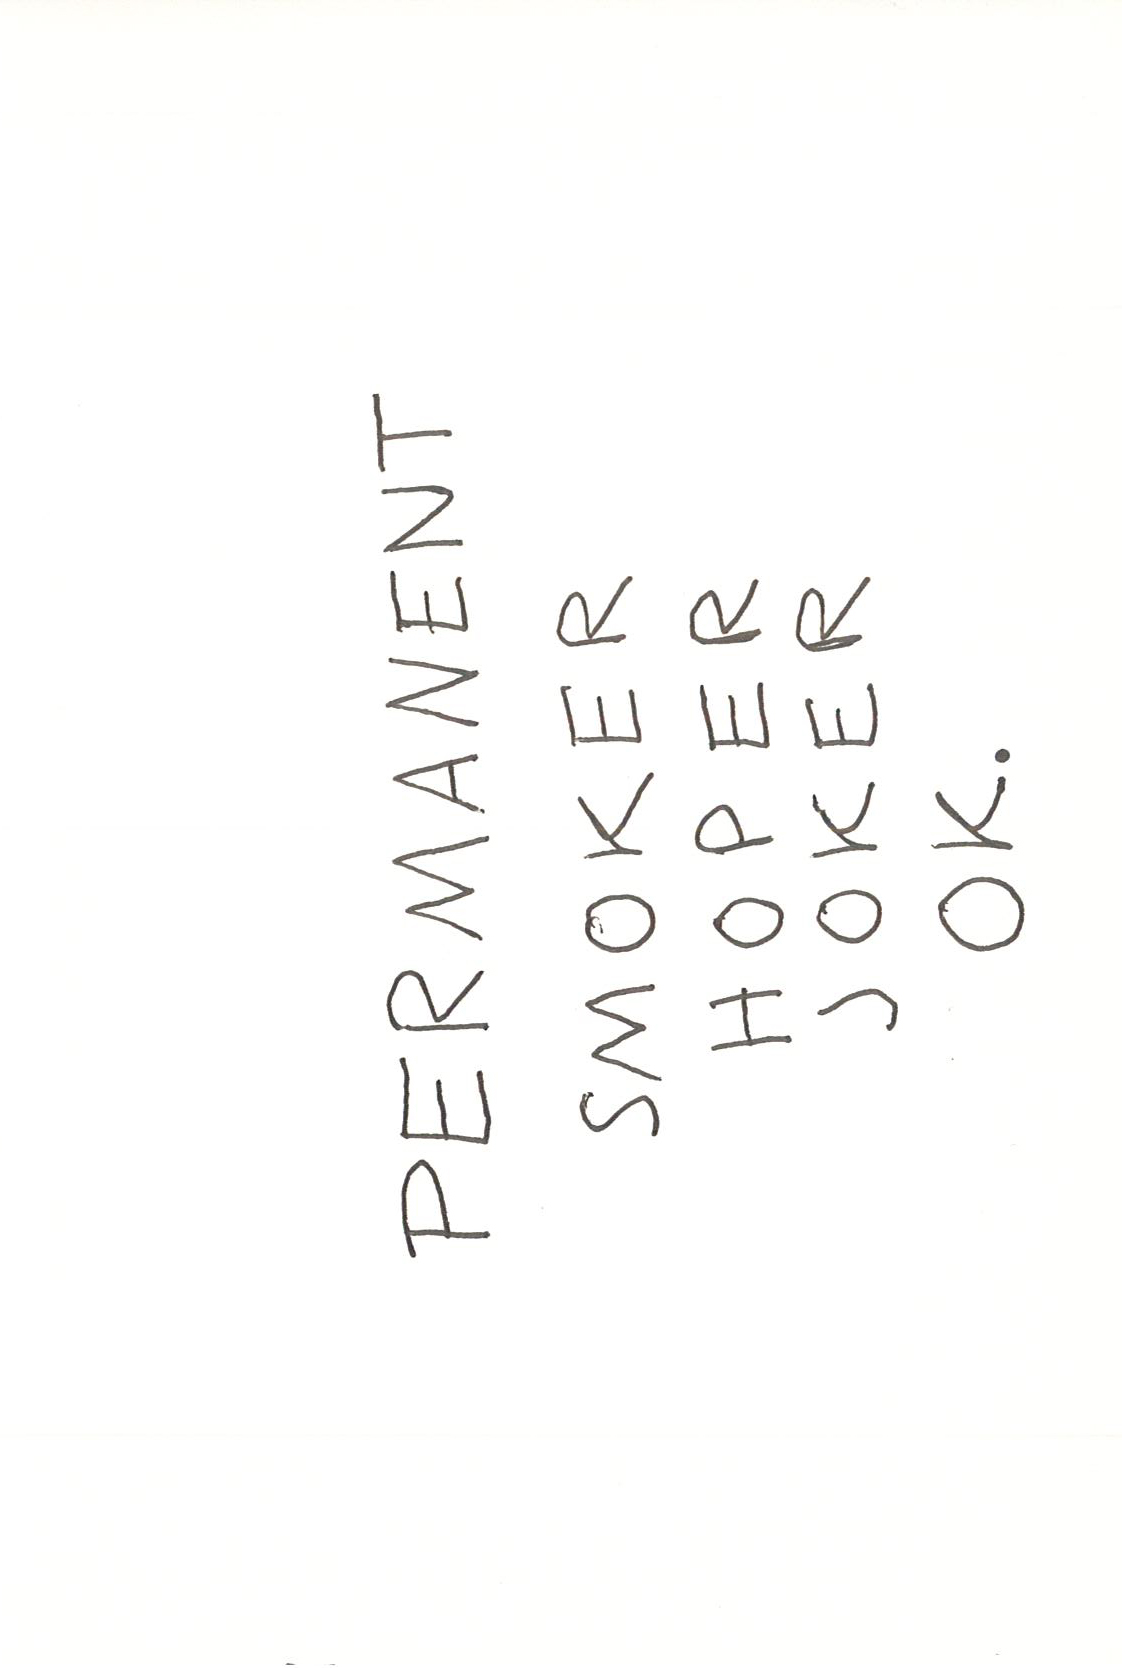 PERMANENT
SMOKER
HOPER
JOKER
OK.